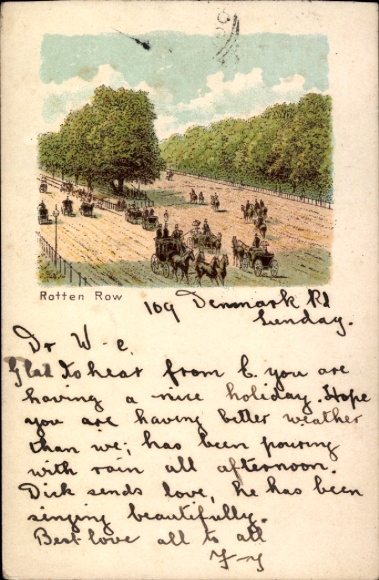 Rotten Row
109 Denmark Rd
Sunday.
Dr W-e.
Glad to hear from E. you are
having a nice holiday. Hope
you are having better weather
than we; has been pouring
with rain all afternoon.
Dick sends love, he has been
singing beautifully.
Best love all to all